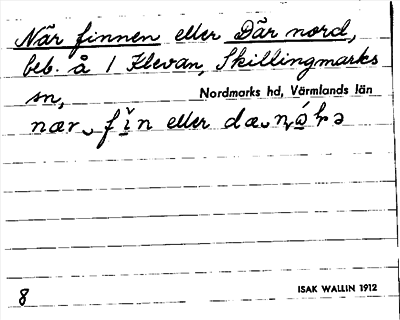 När finnen eller Där nord,
beb. å 1 Klevan, Skillingmarks
sn,
Nordmarks hd, Värmlands län
eller
8
ISAK WALLIN 1912